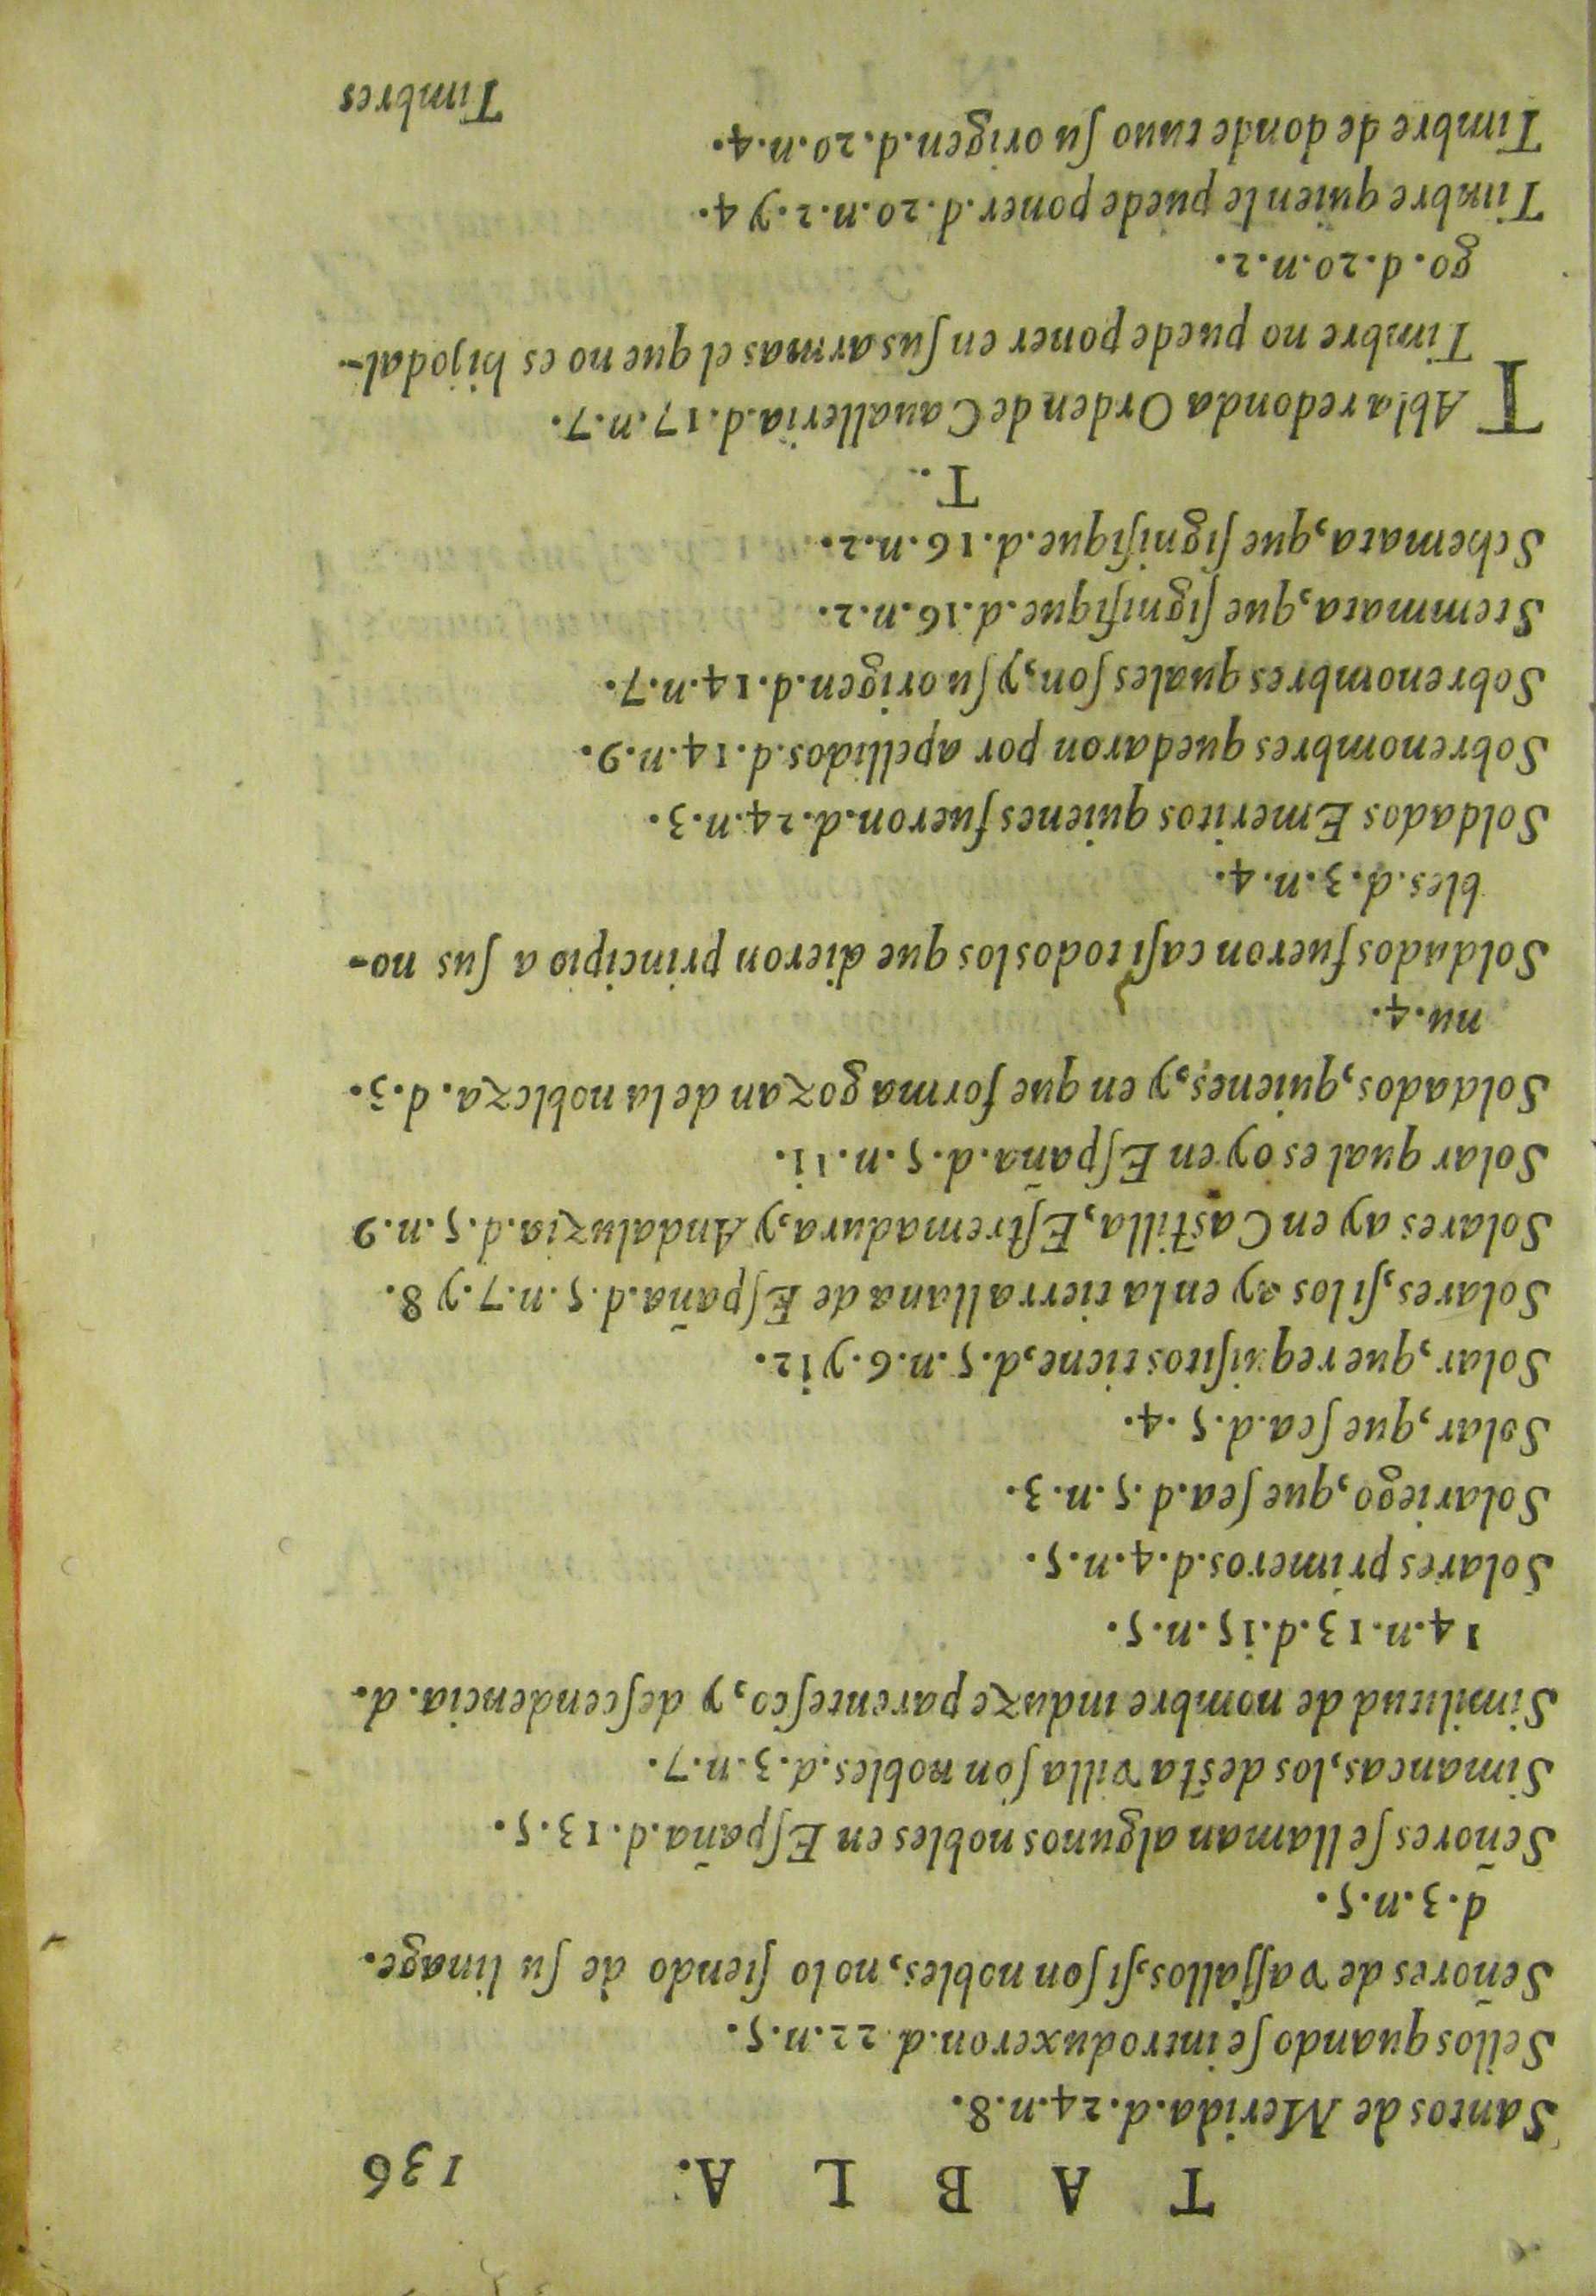 T A B L A. 136
Santos de Merida.d.24.n.8.
Sellos quando ſe introduxeron.d.22.n.5.
Señores de vaſſallos,ſi ſon nobles,no lo ſiendo de ſu linage.
d.3.n.5.
Señores ſe llaman algunos nobles en Eſpaña.d.13.5.
Simancas,los deſta villa ſon nobles.d.3.n.7.
Similitud de nombre induze parenteſco,y deſcendencia.d.
14.n.13.d.15.n.5.
Solares primeros.d.4.n.5.
Solariego,que ſea.d.5.n.3.
Solar,que ſea.d.5.4.
Solar,que requiſitos tiene,d.5.n.6.y 12.
Solares,ſi los ay en la tierra llana de Eſpaña.d.5.n.7.y 8.
Solares ay en Caſtilla,Eſtremadura,y Andaluzia.d.5.n.9
Solar qual es oy en Eſpaña.d.5.n.11.
Soldados,quienes,y en que forma gozan de la nobleza.d.3.
nu.4.
Soldados fueron caſi todos los que dieron principio a ſus no-
bles.d.3.n.4.
Soldados Emeritos quienes fueron.d.24.n.3.
Sobrenombres quedaron por apellidos.d.14.n.9.
Sobrenombres quales ſon,y ſu origen.d.14.n.7.
Stemmata,que ſignifique.d.16.n.2.
Schemata,que ſignifique.d.16.n.2.
T.
TAbla redonda Orden de Cavalleria.d.17.n.7.
Timbre no puede poner en ſus armas el que no es hijodal-
go.d.20.n.2.
Timbre quien le puede poner.d.20.n.2.y 4.
Timbre de donde tuuo ſu origen.d.20.n.4.
Timbres